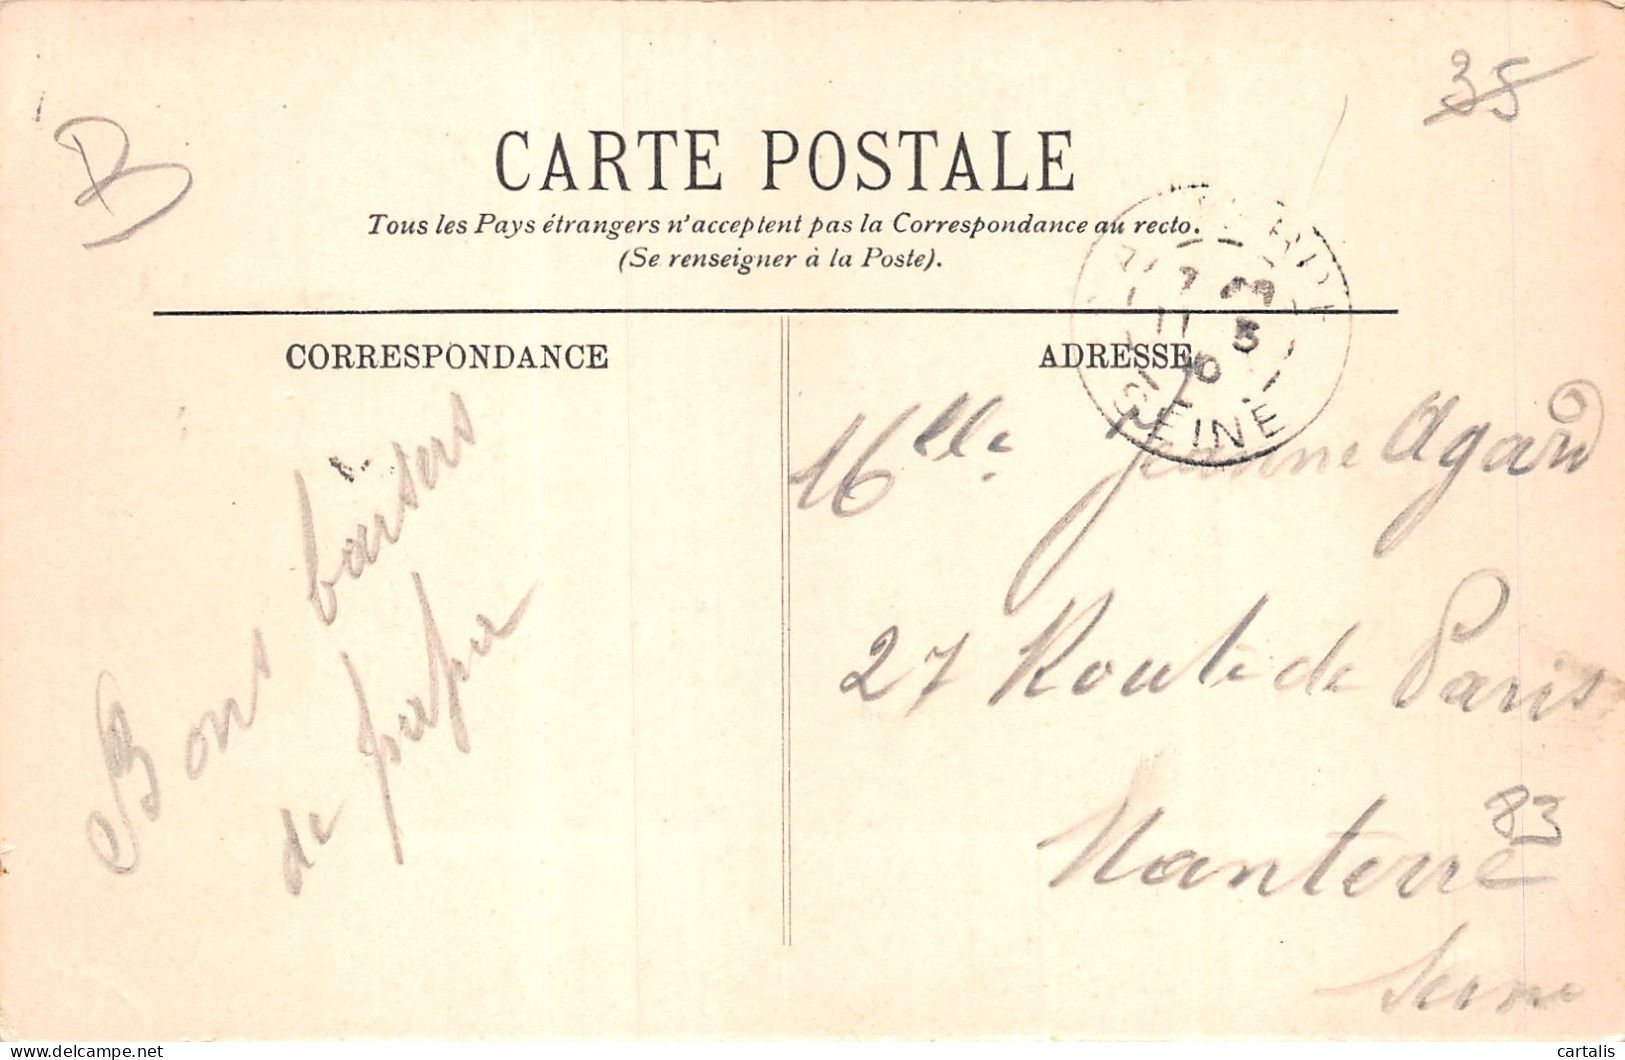 35
B
CARTE POSTALE
Tous les Pays étrangers n'acceptent pas la Correspondance au recto.
(Se renseigner à la Poste).
7
11 5
10
SEINE
CORRESPONDANCE
ADRESSE
Bons baisers
de papa
Mlle Jeanne Agard
27 Route de Paris
83
Nanterre
Seine
www.delcampe.net
cartalis